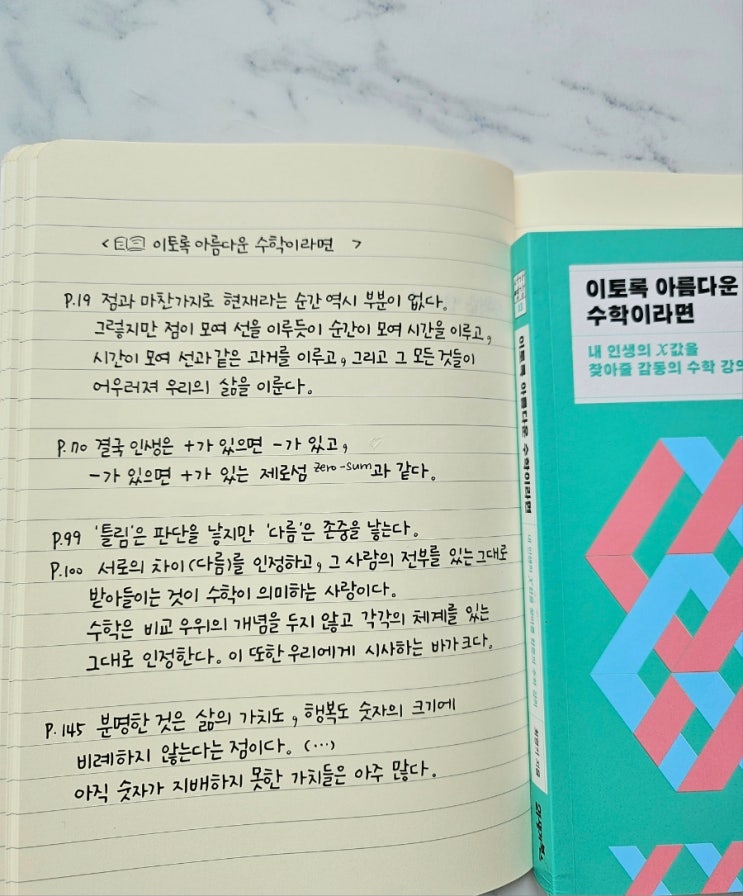 < 이토록 아름다운 수학이라면 >
P.19 점과 마찬가지로 현재라는 순간 역시 부분이 없다.
그렇지만 점이 모여 선을 이루듯이 순간이 모여 시간을 이루고,
시간이 모여 선과 같은 과거를 이루고, 그리고 그 모든 것들이
어우러져 우리의 삶을 이룬다.
P.70 결국 인생은 +가 있으면 -가 있고,
-가 있으면 +가 있는 제로섬 zero-sum과 같다.
P.99 '틀림'은 판단을 낳지만 '다름'은 존중을 낳는다.
P.100 서로의 차이(다름)를 인정하고, 그 사람의 전부를 있는 그대로
받아들이는 것이 수학이 의미하는 사랑이다.
수학은 비교 우위의 개념을 두지 않고 각각의 체계를 있는
그대로 인정한다. 이 또한 우리에게 시사하는 바가 크다.
P.145 분명한 것은 삶의 가치도, 행복도 숫자의 크기에
비례하지 않는다는 점이다. (…)
아직 숫자가 지배하지 못한 가치들은 아주 많다.
이토록 아름다운 수학이라면
내 인생의 X값을 찾아줄 감동의 수학 강의
최영기 지음
21세기북스
이토록 아름다운
수학이라면
내 인생의 X값을
찾아줄 감동의 수학 강의